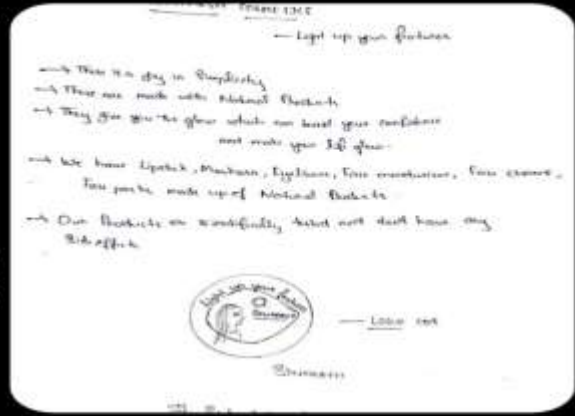 — Light up your features
→ There is a joy in Simplicity
→ These are made with Natural Products
→ They give you the glow which can boost your confidence
and make your life glow.
→ We have Lipstick, Maskara, Eyeliner, Face moisturizer, Face creams,
Face packs made up of Natural Products.
→ Our Products are scientifically tested and don't have any
Side effects.
Light up your features
— Logo